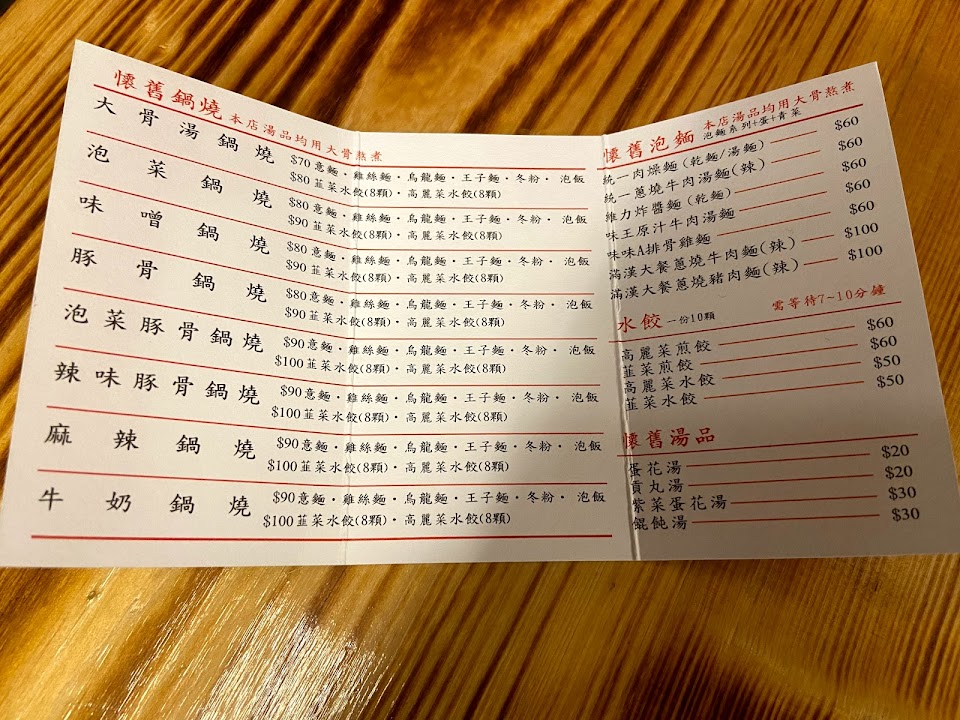 懷舊鍋燒 本店湯品均用大骨熬煮
大骨湯鍋燒 $70意麵・雞絲麵・烏龍麵・王子麵・冬粉・泡飯
$80韮菜水餃(8顆)・高麗菜水餃(8顆)
泡菜鍋燒 $80意麵・雞絲麵・烏龍麵・王子麵・冬粉・泡飯
$90韮菜水餃(8顆)・高麗菜水餃(8顆)
味噌鍋燒 $80意麵・雞絲麵・烏龍麵・王子麵・冬粉・泡飯
$90韮菜水餃(8顆)・高麗菜水餃(8顆)
豚骨鍋燒 $80意麵・雞絲麵・烏龍麵・王子麵・冬粉・泡飯
$90韮菜水餃(8顆)・高麗菜水餃(8顆)
泡菜豚骨鍋燒 $90意麵・雞絲麵・烏龍麵・王子麵・冬粉・泡飯
$100韮菜水餃(8顆)・高麗菜水餃(8顆)
辣味豚骨鍋燒 $90意麵・雞絲麵・烏龍麵・王子麵・冬粉・泡飯
$100韮菜水餃(8顆)・高麗菜水餃(8顆)
麻辣鍋燒 $90意麵・雞絲麵・烏龍麵・王子麵・冬粉・泡飯
$100韮菜水餃(8顆)・高麗菜水餃(8顆)
牛奶鍋燒 $90意麵・雞絲麵・烏龍麵・王子麵・冬粉・泡飯
$100韮菜水餃(8顆)・高麗菜水餃(8顆)
懷舊泡麵 本店湯品均用大骨熬煮
泡麵系列+蛋+青菜
統一肉燥麵(乾麵/湯麵) $60
統一蔥燒牛肉湯麵(辣) $60
維力炸醬麵(乾麵) $60
味王原汁牛肉湯麵 $60
味味A排骨雞麵 $60
滿漢大餐蔥燒牛肉麵(辣) $100
滿漢大餐蔥燒豬肉麵(辣) $100
水餃 一份10顆 需等待7~10分鐘
高麗菜煎餃 $60
韮菜煎餃 $60
高麗菜水餃 $50
韮菜水餃 $50
懷舊湯品
蛋花湯 $20
貢丸湯 $20
紫菜蛋花湯 $30
餛飩湯 $30